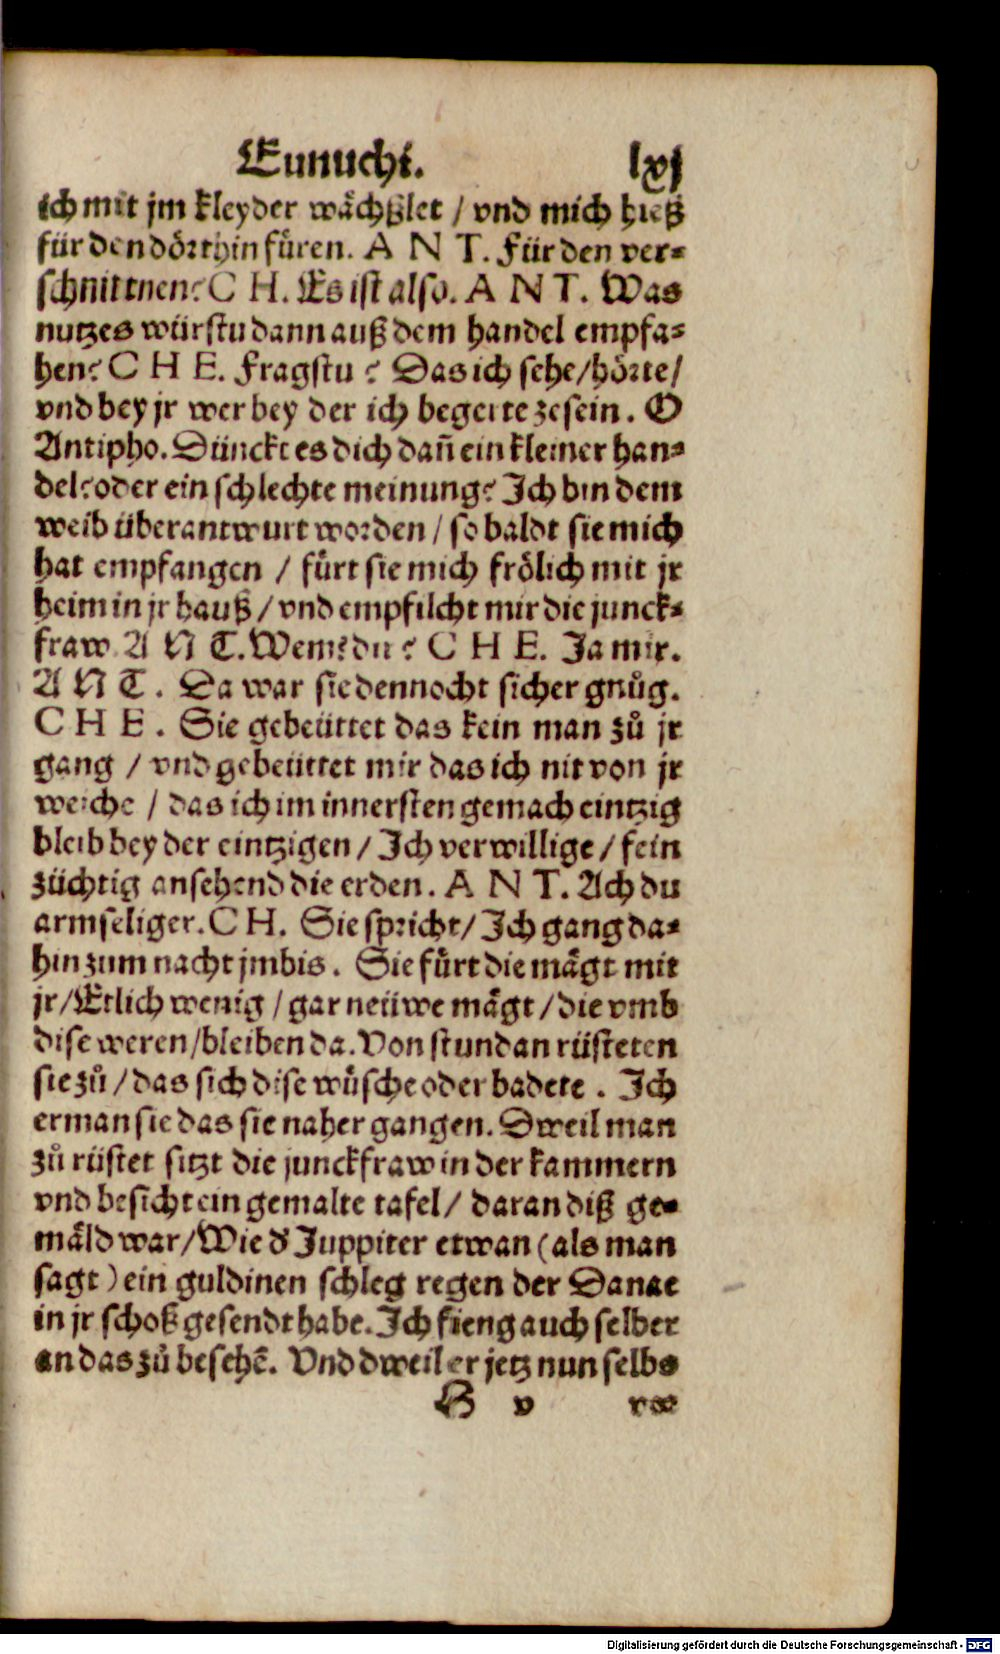 Eunuchi. lxj
ich mit jm kleyder wächßlet / vnd mich hieß
für den dörthin füren. A N T. Für den ver⸗
schnittnen? C H. Es ist also. A N T. Was
nutzes würstu dann auß dem handel empfa⸗
hen? C H E. Fragstu? Das ich sehe/hörte/
vnd bey jr wer bey der ich begerte zesein. O
Antipho. Dünckt es dich dañ ein kleiner han⸗
del? oder ein schlechte meinung? Ich bin dem
weib überantwurt worden / so baldt sie mich
hat empfangen / fürt sie mich frölich mit jr
heim in jr hauß / vnd empfilcht mir die junck⸗
fraw A N T. Wem? du? C H E. Ja mir.
A N T. Da war sie dennocht sicher gnůg.
C H E. Sie gebeüttet das kein man zů jr
gang / vnd gebeüttet mir das ich nit von jr
weiche / das ich im innersten gemach eintzig
bleib bey der eintzigen / Ich verwillige / fein
züchtig ansehend die erden. A N T. Ach du
armseliger. C H. Sie spricht/ Ich gang da⸗
hin zum nacht jmbis. Sie fürt die mägt mit
jr/ Etlich wenig / gar neüwe mägt / die vmb
dise weren/bleiben da. Von stund an rüsteten
sie zů / das sich dise wüsche oder badete. Ich
erman sie das sie naher gangen. Dweil man
zů rüstet sitzt die junckfraw in der kammern
vnd besicht ein gemalte tafel / daran diß ge⸗
mäld war/ Wie d' Juppiter etwan (als man
sagt) ein guldinen schleg regen der Danae
in jr schoß gesendt habe. Ich fieng auch selber
an das zů besehē. Vnd dweil er jetz nun selbs
H v
Digitalisierung gefördert durch die Deutsche Forschungsgemeinschaft - DFG